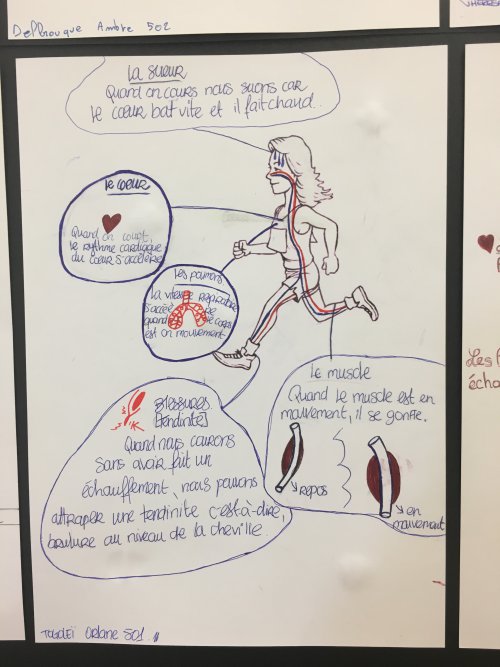 Delfbouque Ambre 502
La sueur
Quand on cours nous suons car
le cœur bat vite et il fait chaud.
le coeur
Quand on court,
le rythme cardiaque
du cœur s'accélère
Les poumons
la vitesse respiratoire
s'accélère
quand le corps
est en mouvement
Le muscle
Quand le muscle est en
mouvement, il se gonfle.
repos
en
mouvement
Blessures
[tendinite]
Quand nous courons
sans avoir fait un
échauffement, nous pouvons
attraper une tendinite c'est à-dire,
brulure au niveau de la cheville.
Orlane 501
Les
écha